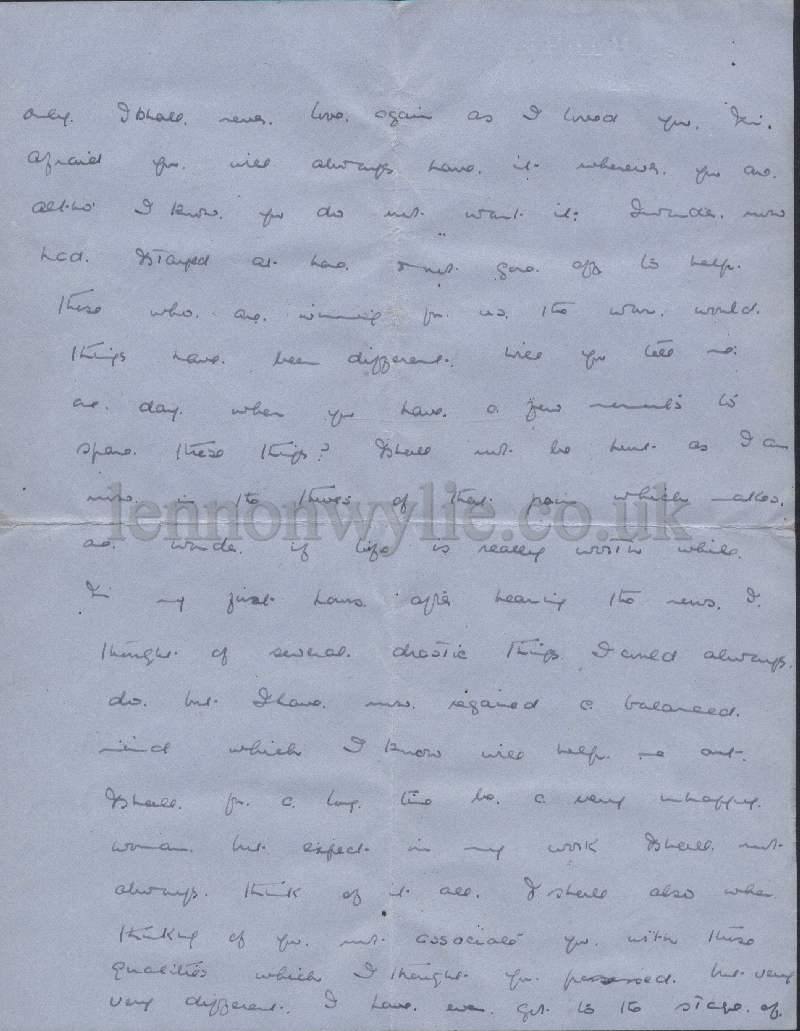 only. I shall never love again as I loved you. I'm
afraid you will always have it wherever you are.
altho' I know you do not want it. I wonder now
had I stayed at home & not gone off to help
those who are winning for us the war would
things have been different. Will you tell me
one day when you have a few moments to
spare these things? I shall not be hurt as I am
now in the throes of that pain which makes
one wonder if life is really worth while.
In my first hours after hearing the news I
thought of several drastic things I could always
do. but I have now regained a balanced
mind which I know will help me out.
I shall for a long time be a very unhappy
woman but expect in my work I shall not
always think of it all. I shall also when
thinking of you not associate you with those
qualities which I thought you possessed. but very
very different. I have even got to the stage of
lennonwylie.co.uk